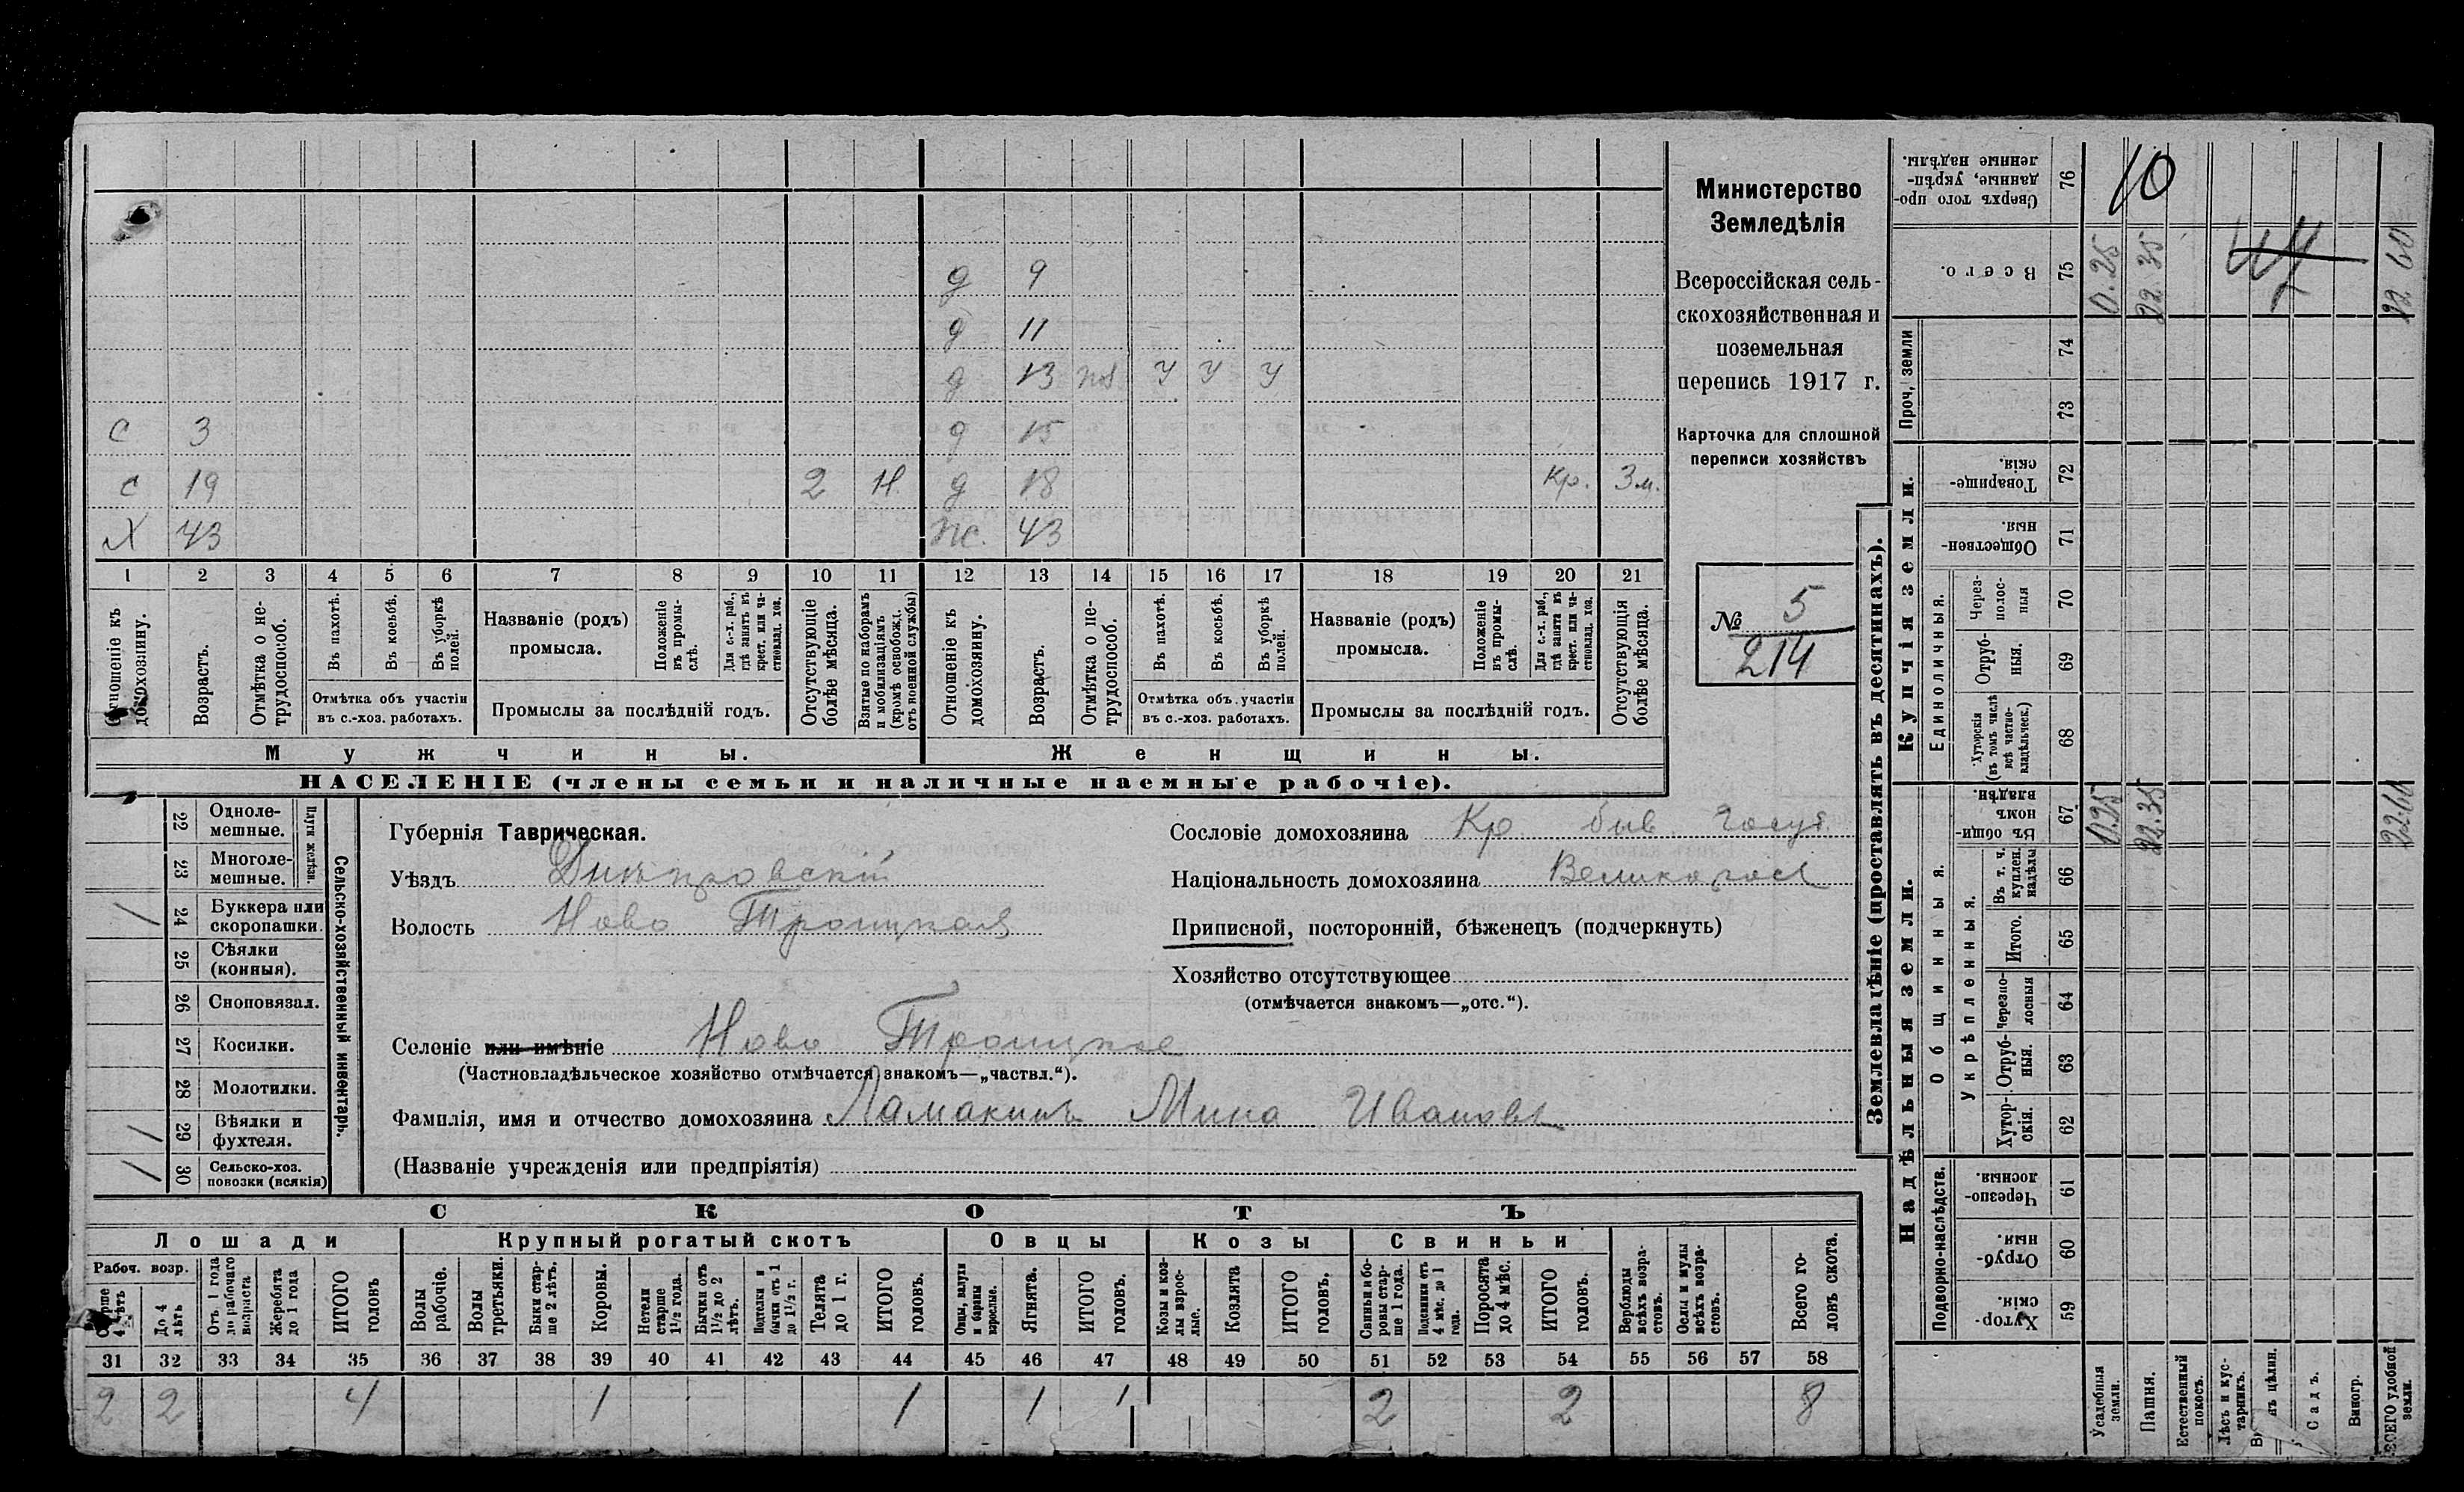 Министерство
Земледѣлія
Всероссійская сель-
скохозяйственная и
поземельная
перепись 1917 г.
Карточка для сплошной
переписи хозяйствъ
№ 5
214
д 9
д 11
д 13 У У У
с 3 д 15
с 19 2 Н. д 18 Кр. 3 м.
Х 43 ж. 43
1 2 3 4 5 6 7 8 9 10 11 12 13 14 15 16 17 18 19 20 21
Отношеніе къ домохозяину.
Возрастъ.
Отмѣтка о не-трудоспособ.
Въ пахотѣ.
Въ косьбѣ.
Въ уборкѣ полей.
Отмѣтка объ участіи
въ с.-хоз. работахъ.
Названіе (родъ)
промысла.
Положеніе въ промы-слѣ.
Для с.-х. раб., гдѣ занятъ въ крест. или ча-стновлад. хоз.
Промыслы за послѣдній годъ.
Отсутствующіе болѣе мѣсяца.
Взятые по наборамъ и мобилизаціямъ (кромѣ освобожд. отъ военной службы)
Отношеніе къ домохозяину.
Возрастъ.
Отмѣтка о не-трудоспособ.
Въ пахотѣ.
Въ косьбѣ.
Въ уборкѣ полей.
Отмѣтка объ участіи
въ с.-хоз. работахъ.
Названіе (родъ)
промысла.
Положеніе въ промы-слѣ.
Для с.-х. раб., гдѣ занята въ крест. или ча-стновлад. хоз.
Промыслы за послѣдній годъ.
Отсутствующія болѣе мѣсяца.
Мужчины. Женщины.
НАСЕЛЕНІЕ (члены семьи и наличные наемные рабочіе).
Сельско-хозяйственный инвентарь.
Плуги желѣзн.
22 Одноле-мешные.
23 Многоле-мешные.
/ 24 Буккера или скоропашки.
25 Сѣялки (конныя).
26 Сноповязал.
27 Косилки.
28 Молотилки.
/ 29 Вѣялки и фухтеля.
/ 30 Сельско-хоз. повозки (всякія)
Губернія Таврическая.
Уѣздъ Днѣпровскій
Волость Ново Троицкая
Сословіе домохозяина Кр быв госуд.
Національность домохозяина Великоросс
Приписной, посторонній, бѣженецъ (подчеркнуть)
Хозяйство отсутствующее
(отмѣчается знакомъ—„отс.“).
Селеніе или имѣніе Ново Троицкое
(Частновладѣльческое хозяйство отмѣчается знакомъ—„частвл.“).
Фамилія, имя и отчество домохозяина Ламакинъ Мина Ивановъ
(Названіе учрежденія или предпріятія)
СКОТЪ
Лошади Крупный рогатый скотъ Овцы Козы Свиньи
Рабоч. возр.
Старше 4 лѣтъ
До 4 лѣтъ
Отъ 1 года до рабочаго возраста
Жеребята до 1 года
ИТОГО головъ
Волы рабочіе.
Волы третьяки.
Быки стар-ше 2 лѣтъ.
Коровы.
Нетели старше 1½ года.
Бычки отъ 1½ до 2 лѣтъ.
Подтелки и бычки отъ 1 до 1½ г.
Телята до 1 г.
ИТОГО головъ.
Овцы, валухи и бараны взрослые.
Ягнята.
ИТОГО головъ.
Козы и коз-лы взрос-лые.
Козлята
ИТОГО головъ.
Свиньи и бо-ровы стар-ше 1 года.
Подсвинки отъ 4 мѣс. до 1 года.
Поросята до 4 мѣс.
ИТОГО головъ.
Верблюды всѣхъ возра-стовъ.
Ослы и мулы всѣхъ возра-стовъ.
Всего го-ловъ скота.
31 32 33 34 35 36 37 38 39 40 41 42 43 44 45 46 47 48 49 50 51 52 53 54 55 56 57 58
2 2 4 1 1 1 1 2 2 8
Землевладѣніе (проставлять въ десятинахъ).
Надѣльныя земли. Купчія земли. Проч. земли
Подворно-наслѣдств. Общинныя. Укрѣпленныя. Единоличныя.
59 Хутор-скія.
60 Отруб-ныя.
61 Черезпо-лосныя.
62 Хутор-скія.
63 Отруб-ныя.
64 Черезпо-лосныя
65 Итого.
66 Въ т. ч. куплен. надѣлы
67 Въ общи-номъ владѣн. 0.25 22.35 22.60
68 Хуторскія (въ томъ числѣ всѣ частно-владѣльческ.)
69 Отруб-ныя.
70 Через-полос-ныя
71 Обществен-ныя.
72 Товарище-скія.
73
74
75 Всего. 0.25 22.35 22 60
76 Сверхъ того про-данные, укрѣп-ленные надѣлы. 10
Усадебныя земли.
Пашня.
Естественный покосъ.
Лѣсъ и кус-тарникъ.
Садъ.
Виногр.
ВСЕГО удобной земли.